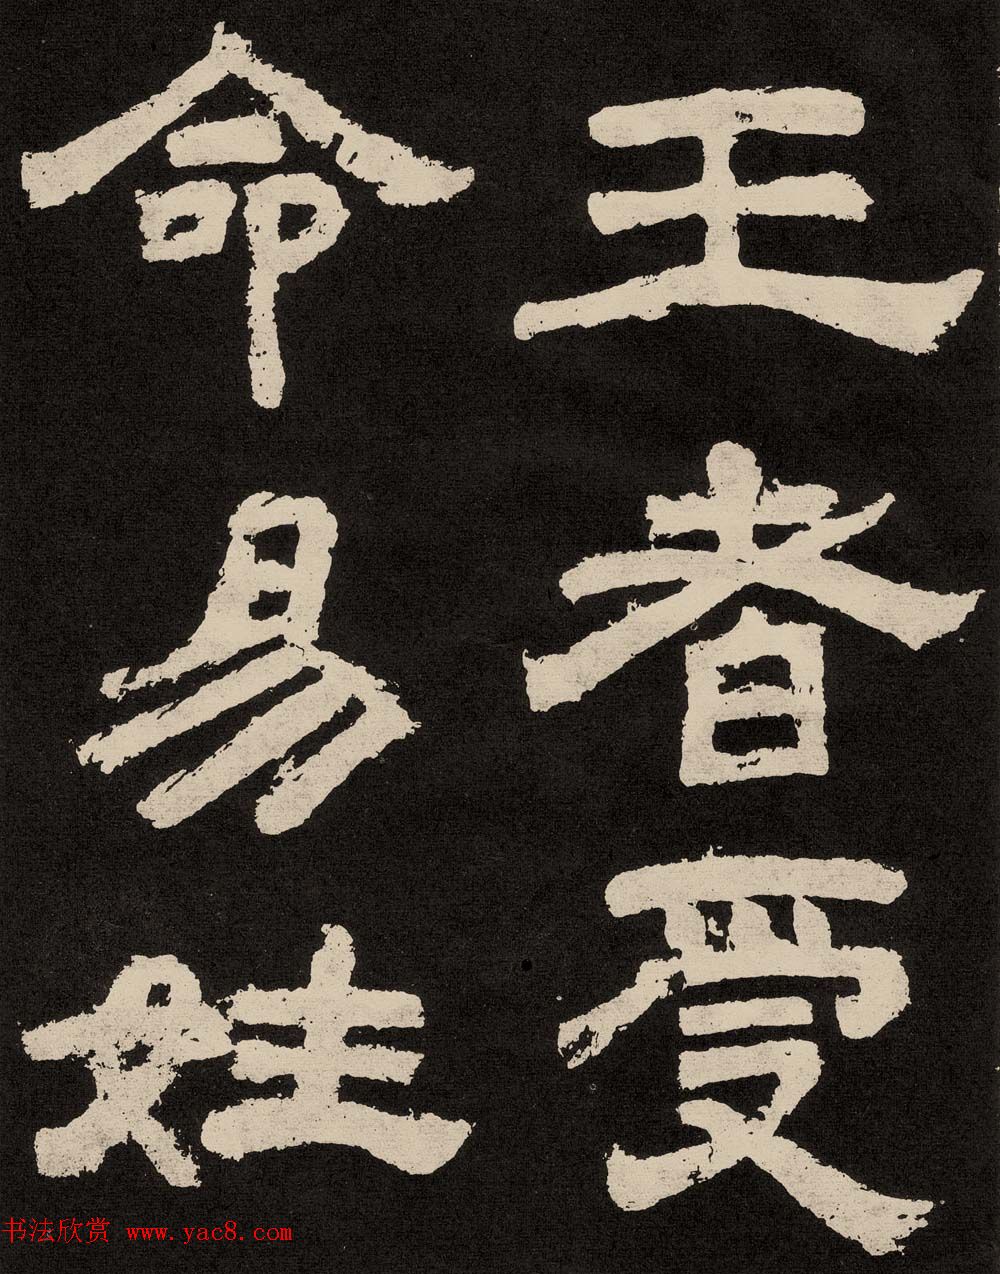 王者受
命易姓
书法欣赏 www.yac8.com